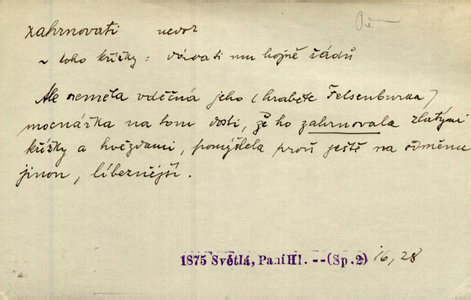 zahrnovati nedok
~ koho křížky: dávati mu hojně řádů
Ale neměla vděčná jeho (hraběte Felsenburka)
mocnářka na tom dosti, že ho zahrnovala zlatými
křížky a hvězdami, pomýšlela proň ještě na odměnu
jinou, líbeznější.
1875 Světlá, Paní Hl. -- (Sp. 2) 16, 28